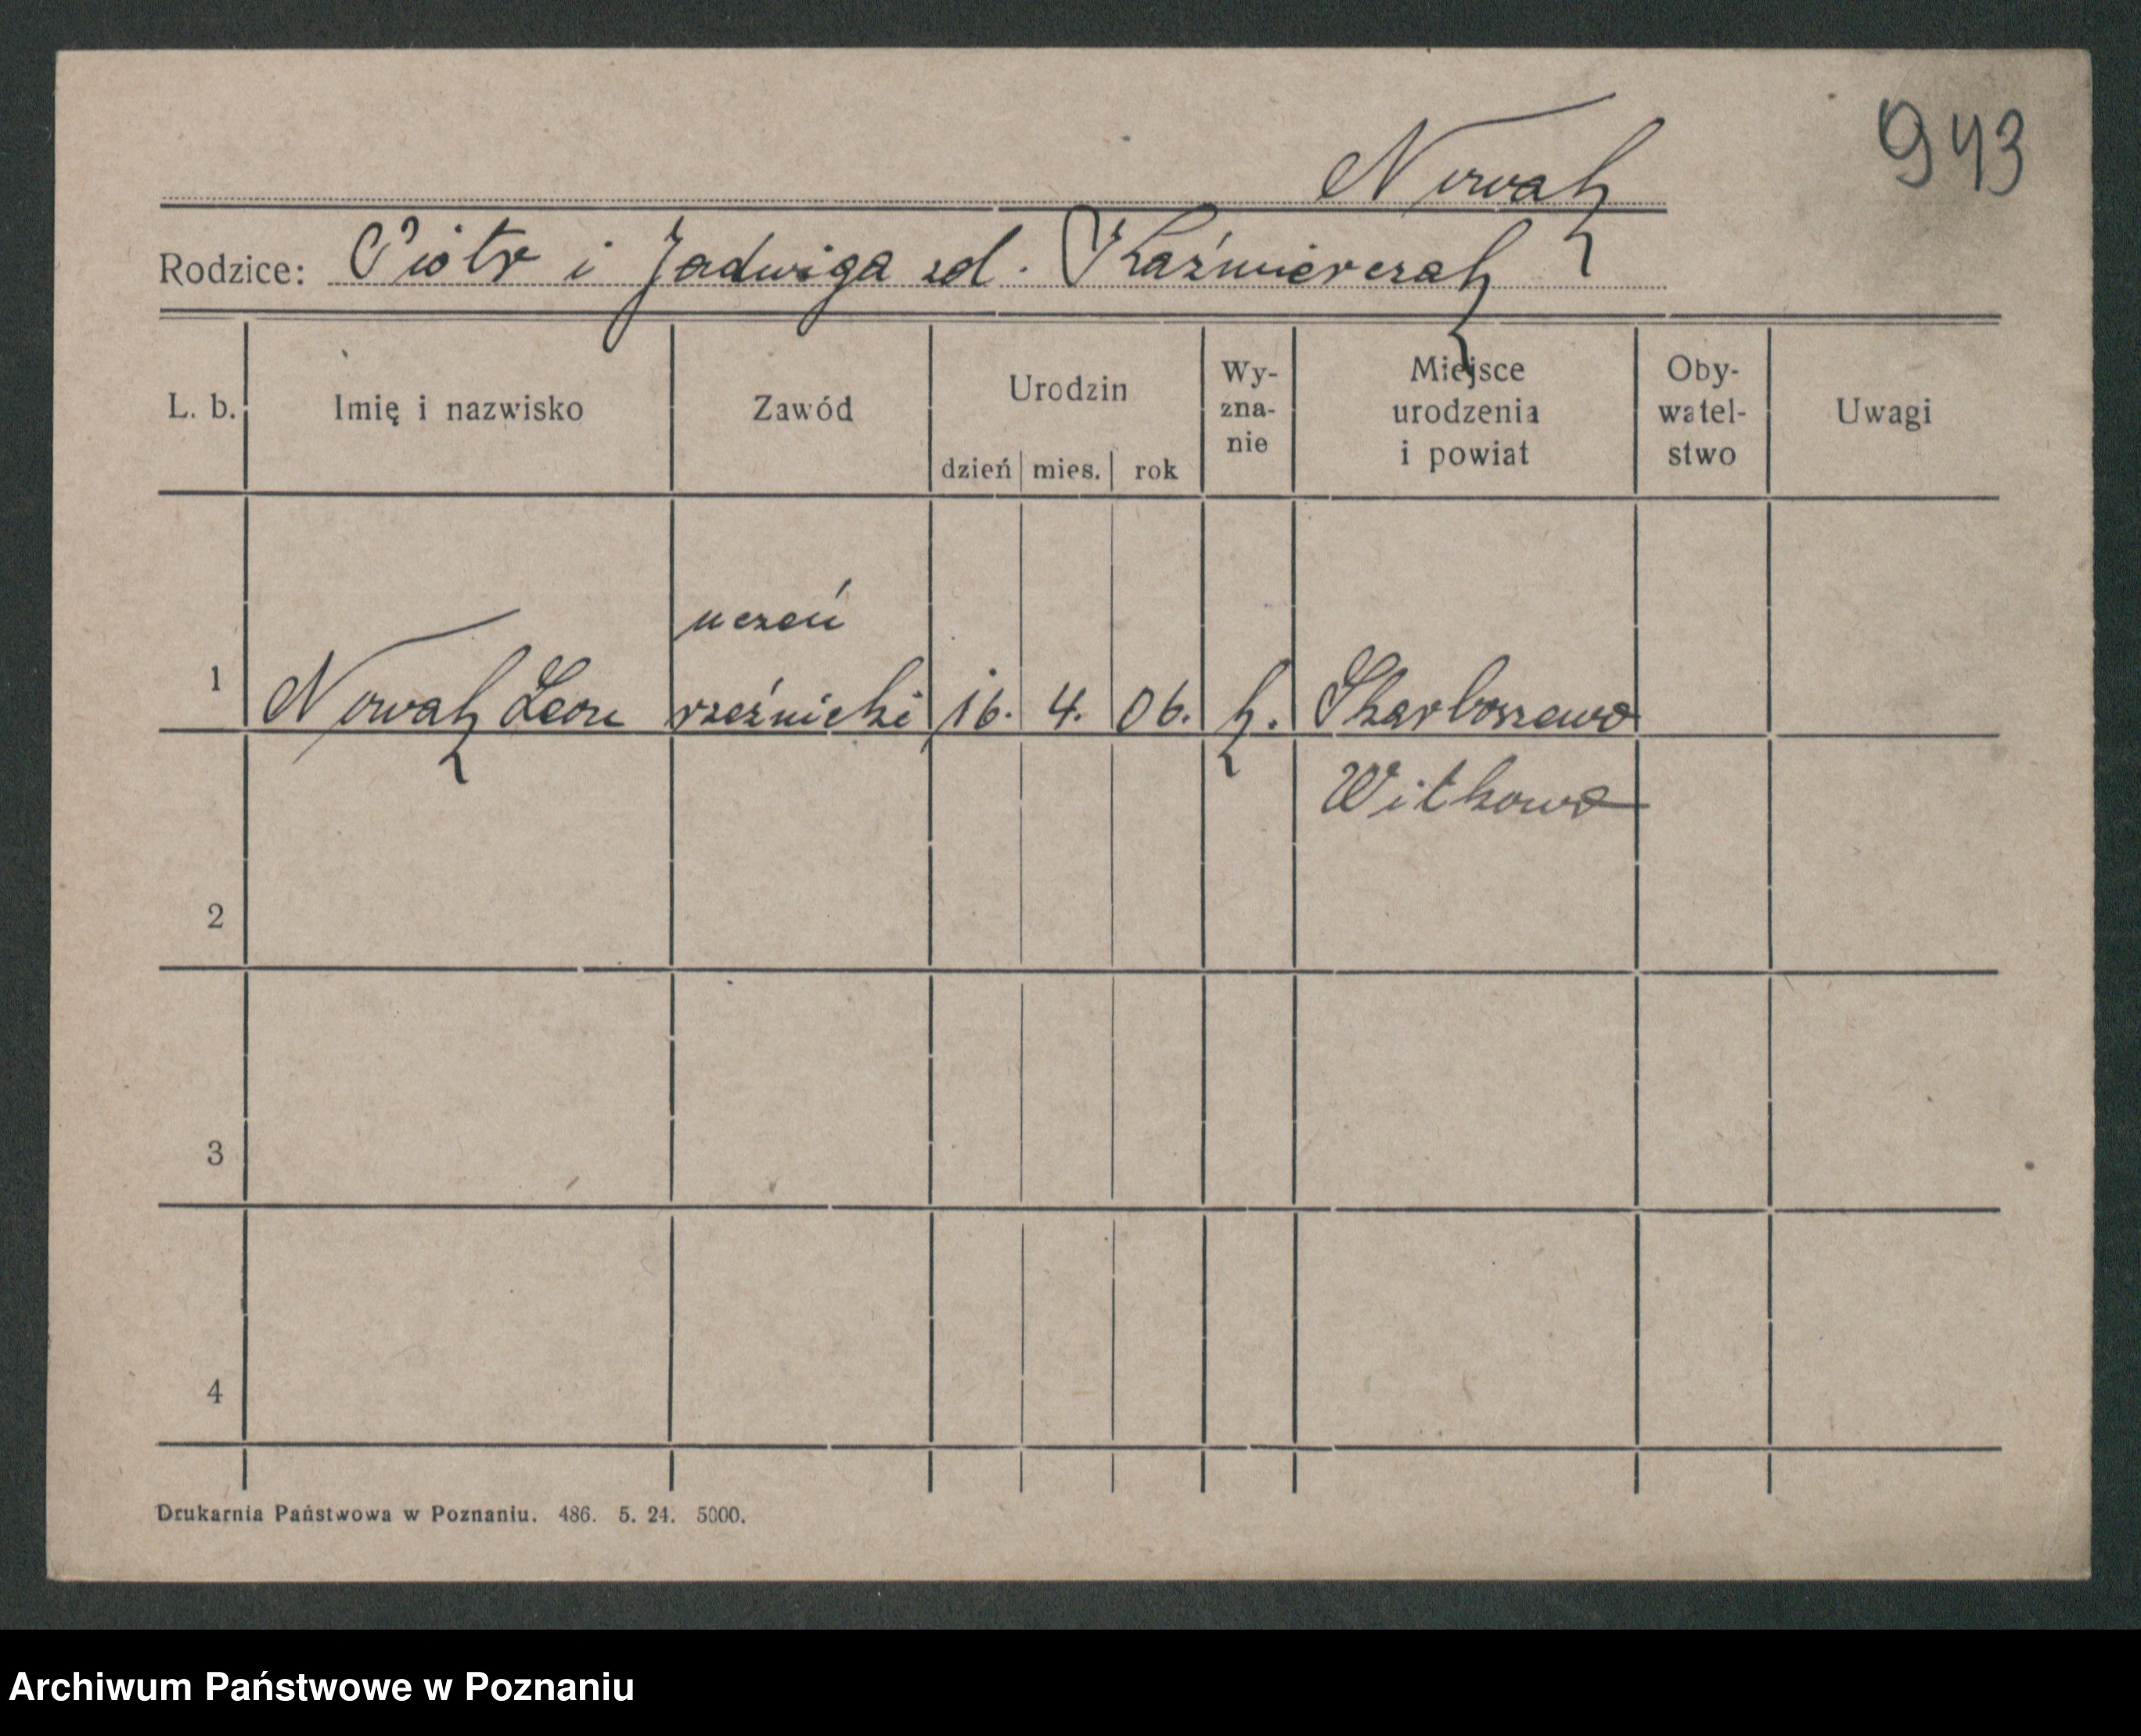 943
Nowak
Rodzice: Piotr i Jadwiga zd. Kaźmierczak
L. b. Imię i nazwisko Zawód Urodzin dzień mies. rok Wy-zna-nie Miejsce urodzenia i powiat Oby-watel-stwo Uwagi
uczeń
1 Nowak Leon rzeźnicki 16. 4. 06. k. Skarboszewo
Witkowo
2
3
4
Drukarnia Państwowa w Poznaniu. 486. 5. 24. 5000.
Archiwum Państwowe w Poznaniu